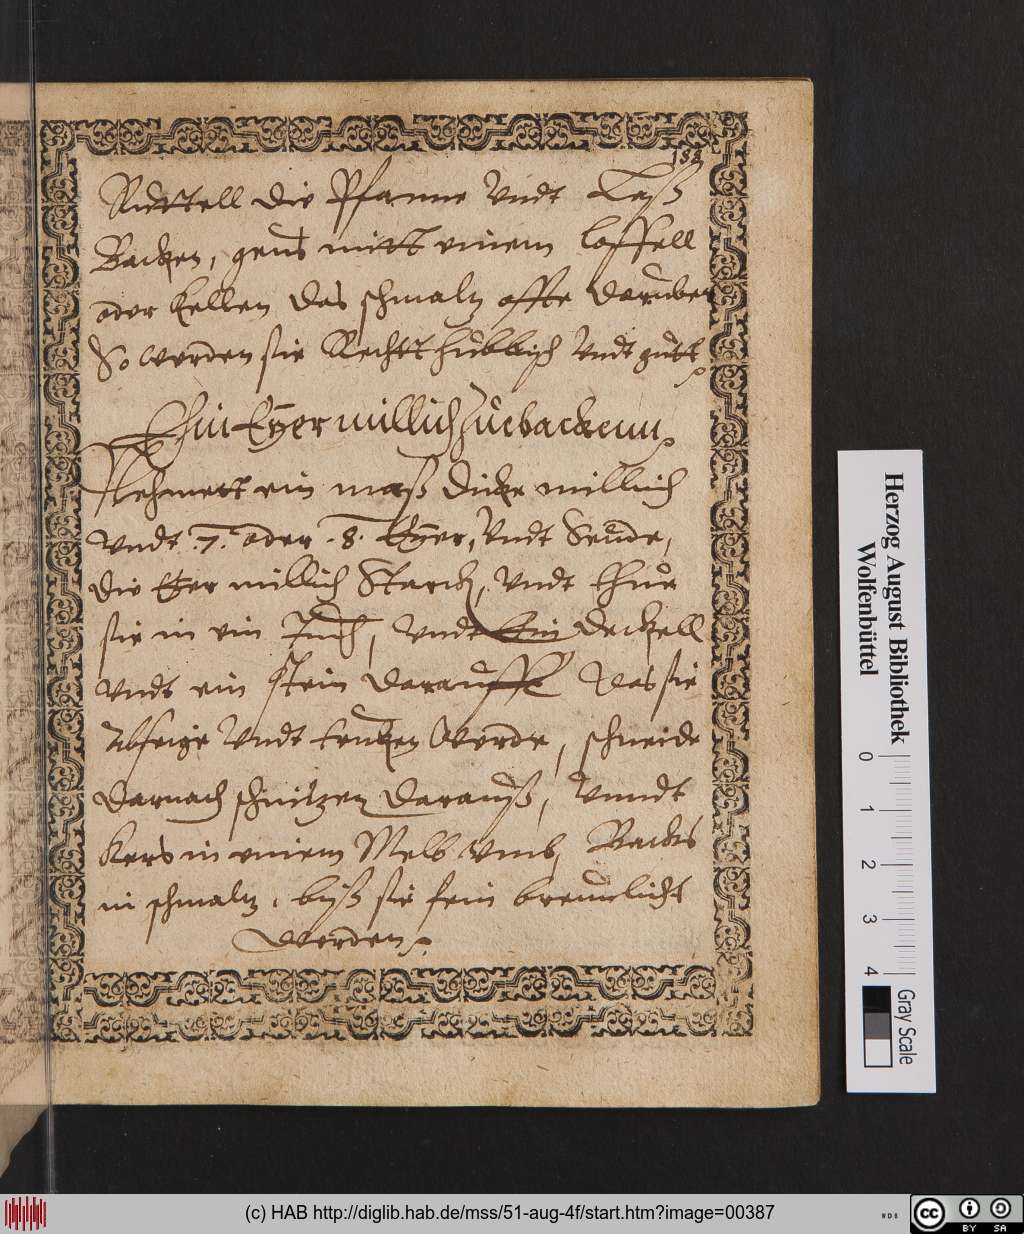 188
Ruttell die Pfanne Vndt Laß
Backen, geus mitt einem loffell
oder kellen das schmalz offte daruber
So werden sie Rechtt hublich Vndt gutt
Ein Eyer millich zue backenn
Nehmett ein maß dicke millich
vndt .7. oder .8. Eyer, Vndt Seude,
die Eyer millich Starck, vndt thue
sie in ein Tuch, vndt Ein deckell
vndt ein stein darauff das sie
Abseige Vndt trucken Werde, schneide
darnach schnitzen darauß, Vnndt
kers in einem Melb vmb, Backs
in schmalz, biß sie fein breunlicht
werden
Herzog August Bibliothek
Wolfenbüttel
0 1 2 3 4
Gray Scale
(c) HAB http://diglib.hab.de/mss/51-aug-4f/start.htm?image=00387
WDB
cc BY SA